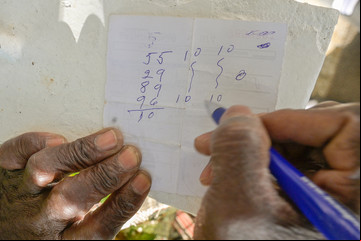 55 10 10
29
89 8
96 10 10
10